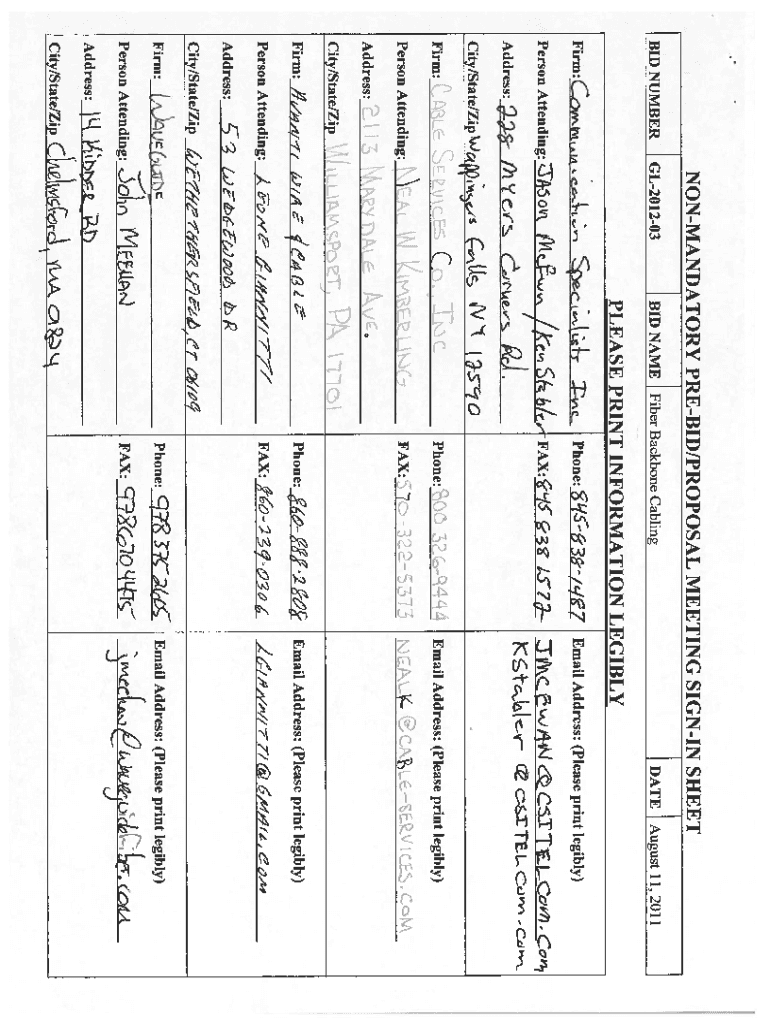 NON-MANDATORY PRE-BID/PROPOSAL MEETING SIGN-IN SHEET
BID NUMBER GL-2012-03 BID NAME Fiber Backbone Cabling DATE August 11, 2011
PLEASE PRINT INFORMATION LEGIBLY
Firm: Communication Specialists Inc Phone: 845-838-1487 Email Address: (Please print legibly)
Person Attending: JASON McEwn / Ken Stabler FAX: 845 838 1572 JMCEWAN@CSITELCom.Com
Address: 228 Myers Corners Rd. KStabler @CSITELCom.com
City/State/Zip Wappingers Falls NY 12590
Firm: CABLE SERVICES CO., INC Phone: 800 326-9444 Email Address: (Please print legibly)
Person Attending: NEAL W KIMBERLING FAX: 570-322-5373 NEALK@CABLE-SERVICES.COM
Address: 2113 MARYDALE AVE.
City/State/Zip WILLIAMSPORT, PA 17701
Firm: AVANTI WIRE & CABLE Phone: 860-888-2808 Email Address: (Please print legibly)
Person Attending: LEONE GIANNITTI FAX: 860-239-0306 LGIANNITTI@GMAIL.COM
Address: 53 WEDGEWOOD DR
City/State/Zip WETHETHERSFIELD, CT 06109
Firm: WAVEGUIDE Phone: 978 375 2605 Email Address: (Please print legibly)
Person Attending: John MEEHAN FAX: 9786704475
Address: 14 KIDDER RD
City/State/Zip Chelmsford, MA 01824